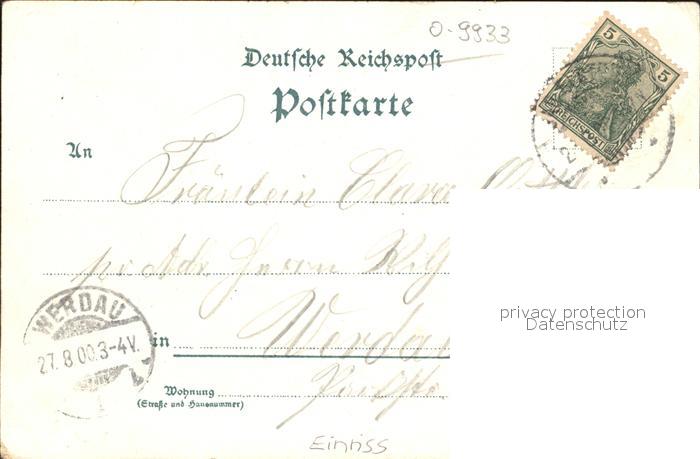 O-9933
Deutsche Reichspost
Postkarte
5 5
REICHSPOST
An
Fräulein Clara
Herrn
privacy protection
Datenschutz
WERDAU
27.8.00.3-4V.
in Werdau
Wohnung
(Straße und Hausnummer)
Einriss